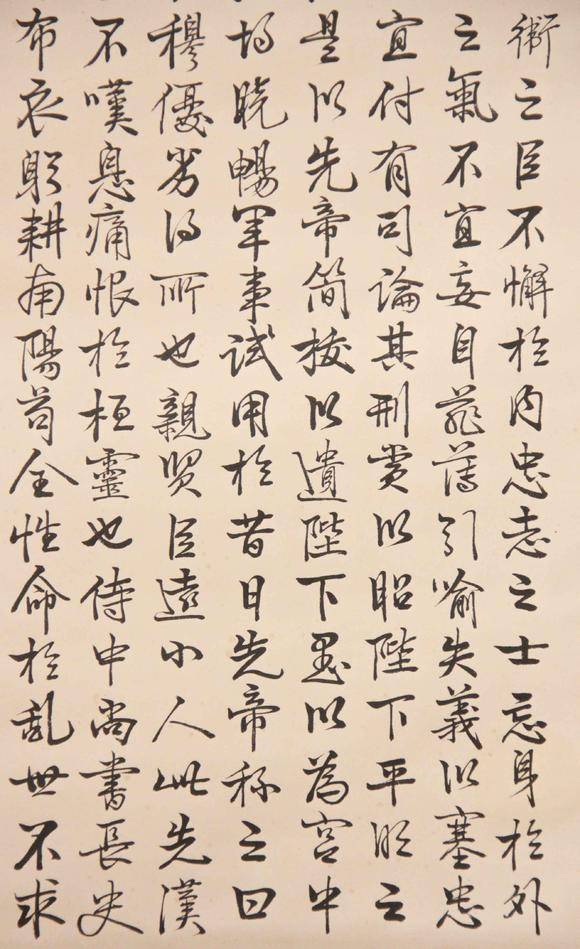 衛之臣不懈於内忠志之士忘身於外
之氣不宜妄自菲薄引喻失義以塞忠
宜付有司論其刑賞以昭陛下平明之
是以先帝简拔以遺陛下愚以為宫中
均晓暢軍事試用於昔日先帝称之曰
穆優劣得所也親贤臣遠小人此先漢
不嘆息痛恨於桓靈也侍中尚書長史
布衣躬耕南陽苟全性命於乱世不求